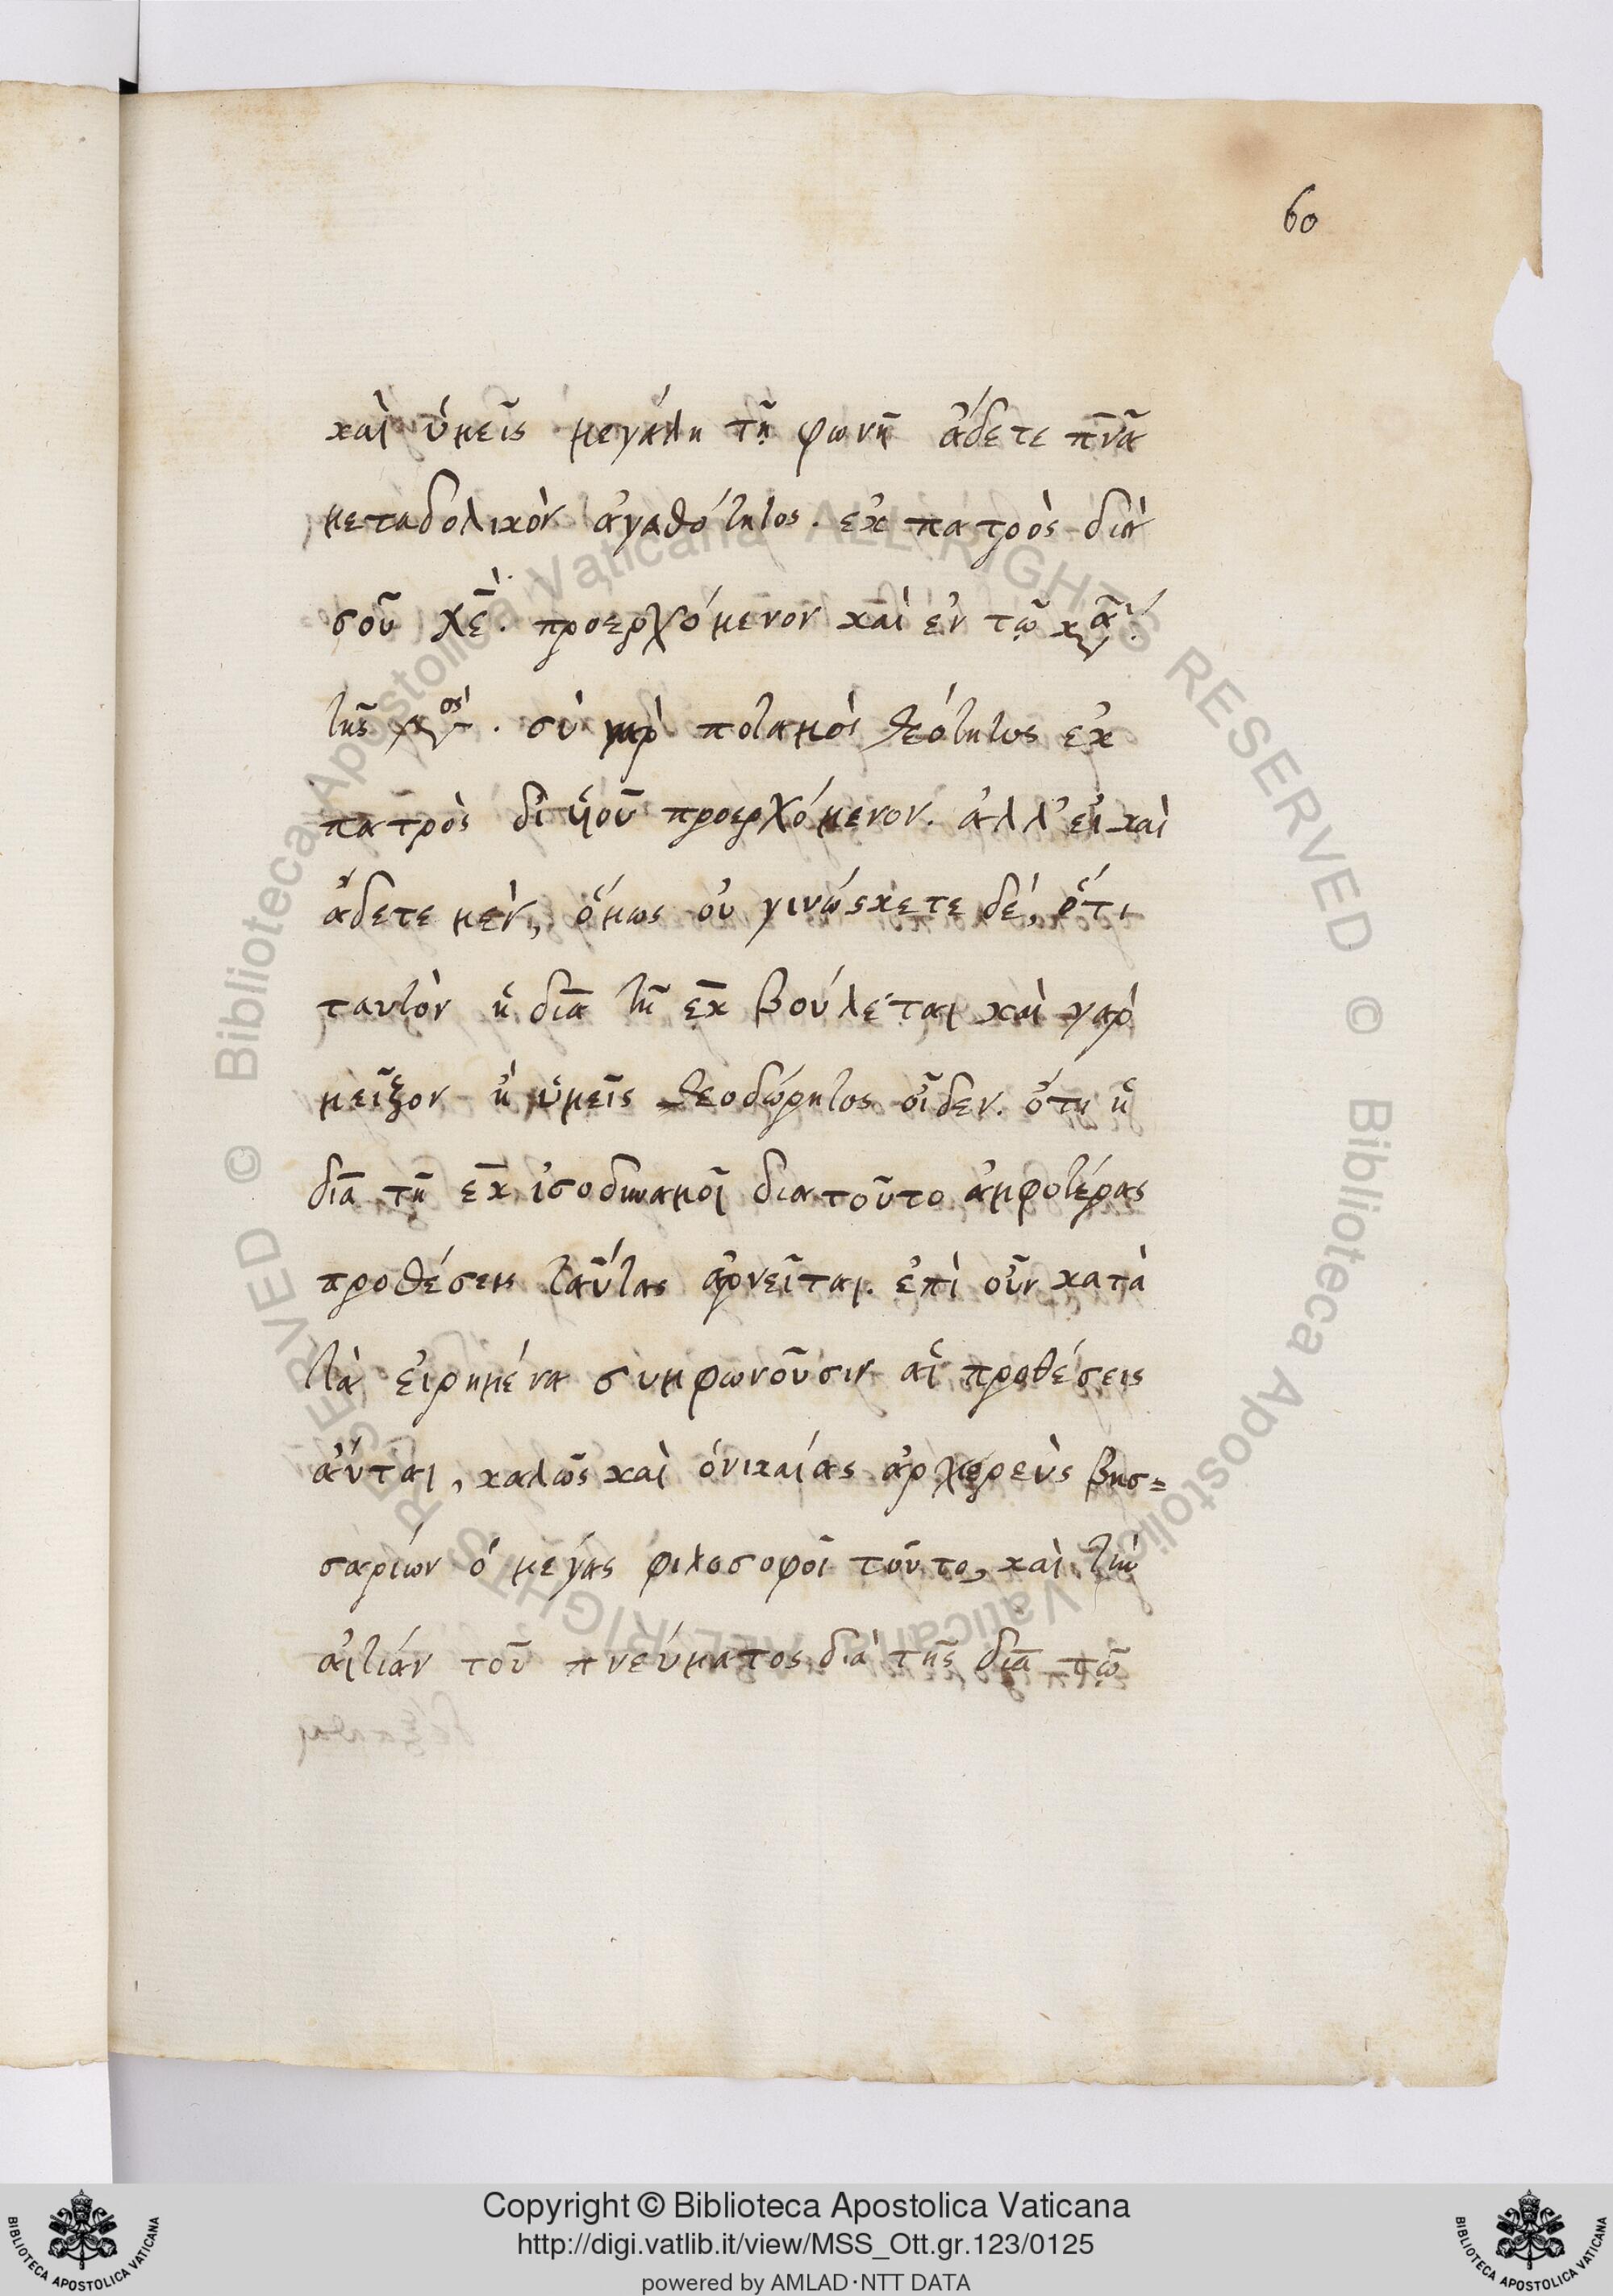 60
καὶ ὑμεῖς μεγάλη τῇ φωνῇ ἄδετε πν̅α̅
μεταδολικὸν ἀγαθότητος. ἐκ πατρὸς διὰ
σοῦ χε̅. προερχόμενον καὶ ἐν τῷ
τῆς. σὺ γὰρ ποταμὸς θεότητος ἐκ
πατρὸς δι ὑοῦ προερχόμενον. ἀλλ' εἰ καὶ
ἄδετε μὲν, ὅμως οὐ γινώσκετε δέ, ὅτι
ταυτὸν ἡ δια̅ τῆ εκ̅ βούλεται καὶ γὰρ
μεῖζον ἢ ὑμεῖς θεοδώρητος οἶδεν. ὅτι ἡ
δια̅ τῆ εκ̅ ἰσοδυναμοῖ διατοῦτο ἀμφοτέρας
προθέσεις ταύτας ἀρνεῖται. ἐπὶ οὖν κατὰ
τὰ εἰρημένα συμφωνοῦσιν αἱ προθέσεις
ἁύται, καλῶς καὶ ὁνικαίας ἀρχιερεὺς βησ=
σαρίων ὁ μέγας φιλοσοφοῖ τοῦτο, καὶ τὴν
ἀιτίαν τοῦ πνεύματος διὰ τῆς δια̅ τῷ
Copyright © Biblioteca Apostolica Vaticana
http://digi.vatlib.it/view/MSS_Ott.gr.123/0125
powered by AMLAD·NTT DATA
BIBLIOTECA APOSTOLICA VATICANA
BIBLIOTECA APOSTOLICA VATICANA
© Biblioteca Apostolica Vaticana ALL RIGHTS RESERVED
© Biblioteca Apostolica Vaticana ALL RIGHTS RESERVED